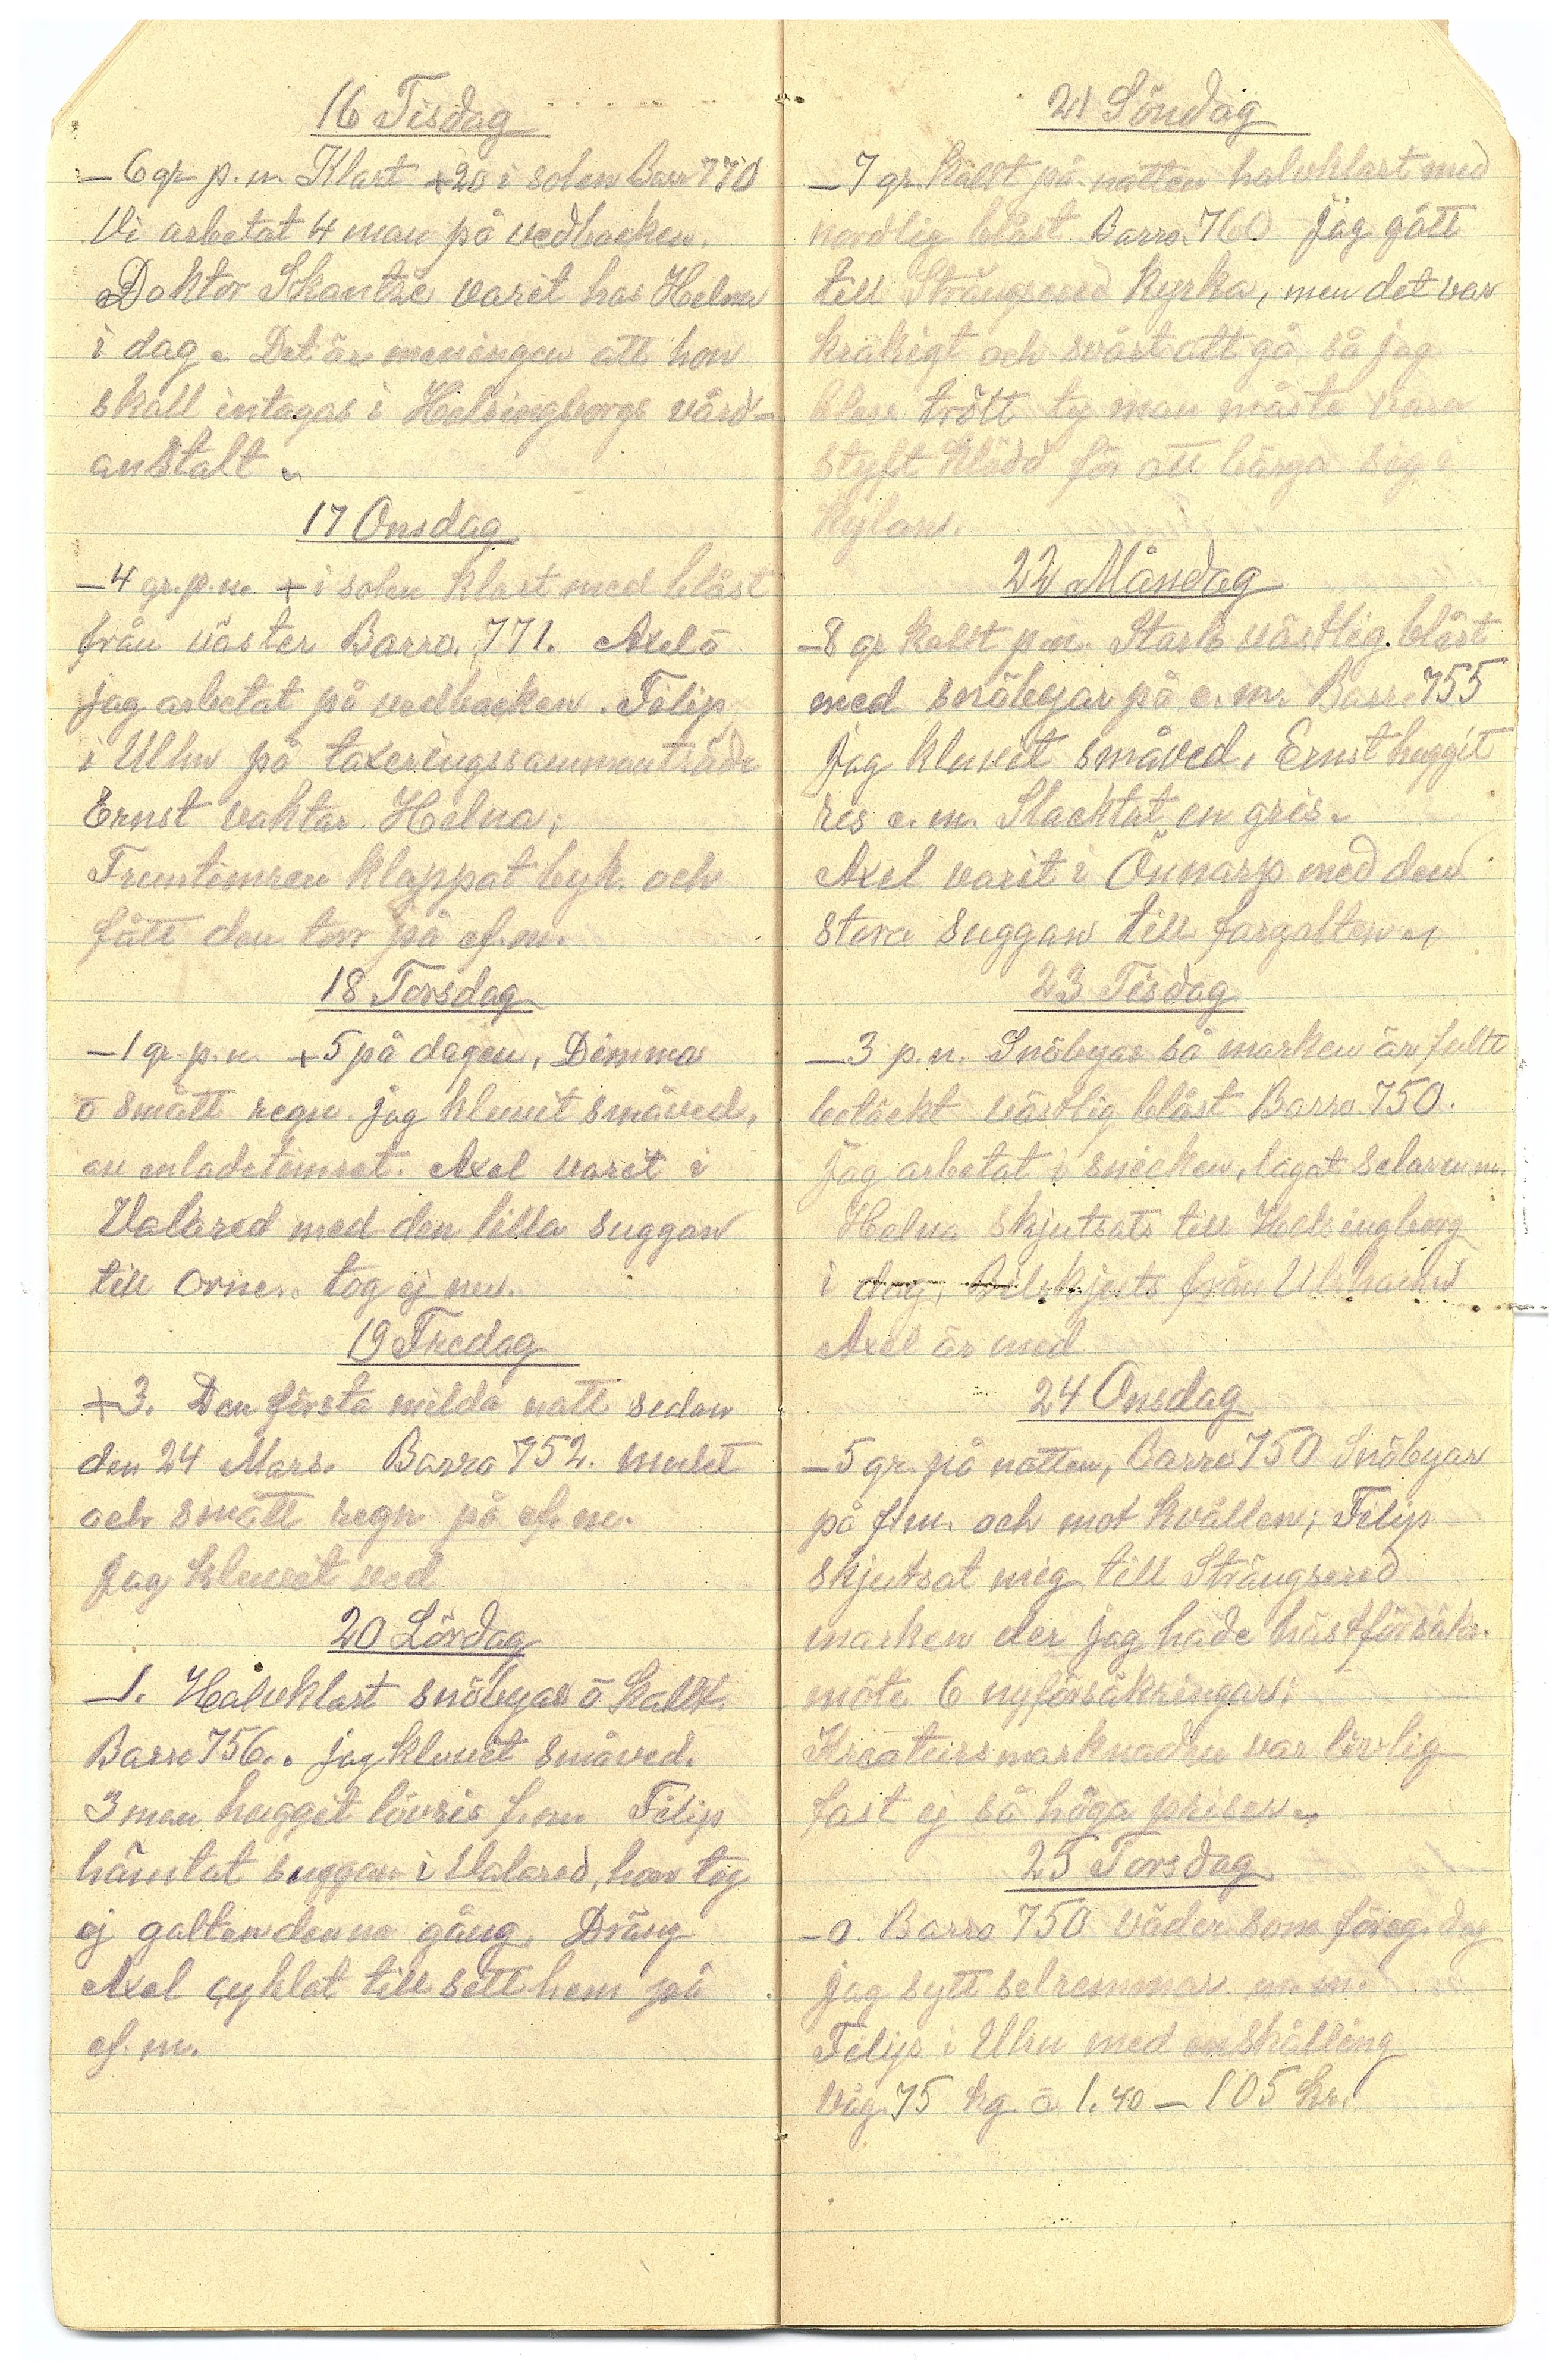 16 Tisdag
–6 gr p. n. Klart +20 i solen Barr 770
Vi arbetat 4 man på vedbacken.
Doktor Skantze varit hos Helna
i dag. Det är meningen att hon
skall intagas i Helsingborgs vård-
anstalt.
17 Onsdag
–4 gr. p. n. + i solen klart med blåst
från väster Barro. 771. Axel o
jag arbetat på vedbacken. Filip
i Ulhn på taxeringssammanträde
Ernst vaktar Helna,
Fruntimren klappat byk och
fått den torr på ef. m.
18 Torsdag
–1 gr p. n. +5 på dagen, Dimma
o smått regn jag kluvit småved,
av enladetimret. Axel varit i
Valared med den lilla suggan
till orne. tog ej nu.
19 Fredag
+3. Den första milda natt sedan
den 24 Mars. Barro 752. mulet
och smått regn på ef. m.
Jag kluvit ved
20 Lördag
–1. Halvklart snöbyar o kallt.
Barro 756. jag kluvit småved.
3 man huggit lövris f. m. Filip
hämtat suggan i Valared, hon tog
ej galten denna gång, Dräng
Axel cyklat till sitt hem på
ef. m.
21 Söndag
–7 gr. kallt på natten halvklart med
nordlig blåst Barro. 760 Jag gått
till Strängsered kyrka, men det var
kräkigt och svårt att gå så jag
blev trött ty man måste vara
styft klädd för att bärga sig i
kylan.
22 Måndag
–8 gr kallt p. n. Stark västlig blåst
med snöbyar på e. m. Barro 755
Jag kluvit småved, Ernst huggit
ris e. m. Slacktat en gris.
Axel varit i Önnarp med den
stora suggan till fargalten
23 Tisdag
–3 p. n. Snöbyar så marken är fullt
betäckt västlig blåst Barro. 750.
Jag arbetat i snicken, lagat selar m.m.
Helna skjutsats till Helsingborg
i dag, Bilskjuts från Ulrhamn
Axel är med
24 Onsdag
–5 gr. på natten, Barro 750 Snöbyar
på f. m. och mot kvällen; Filip
skjutsat mig till Strängsered
marken der jag hade hästförsäkr.
möte 6 nyförsäkringar;
Kreatursmarknaden var livlig
fast ej så höga priser
25 Torsdag
–0. Barro 750 väder som föreg. dag
jag sytt selremmar m. m.
Filip i Uhn med en skälling
väg. 75 kg a 1.40 – 105 kr.